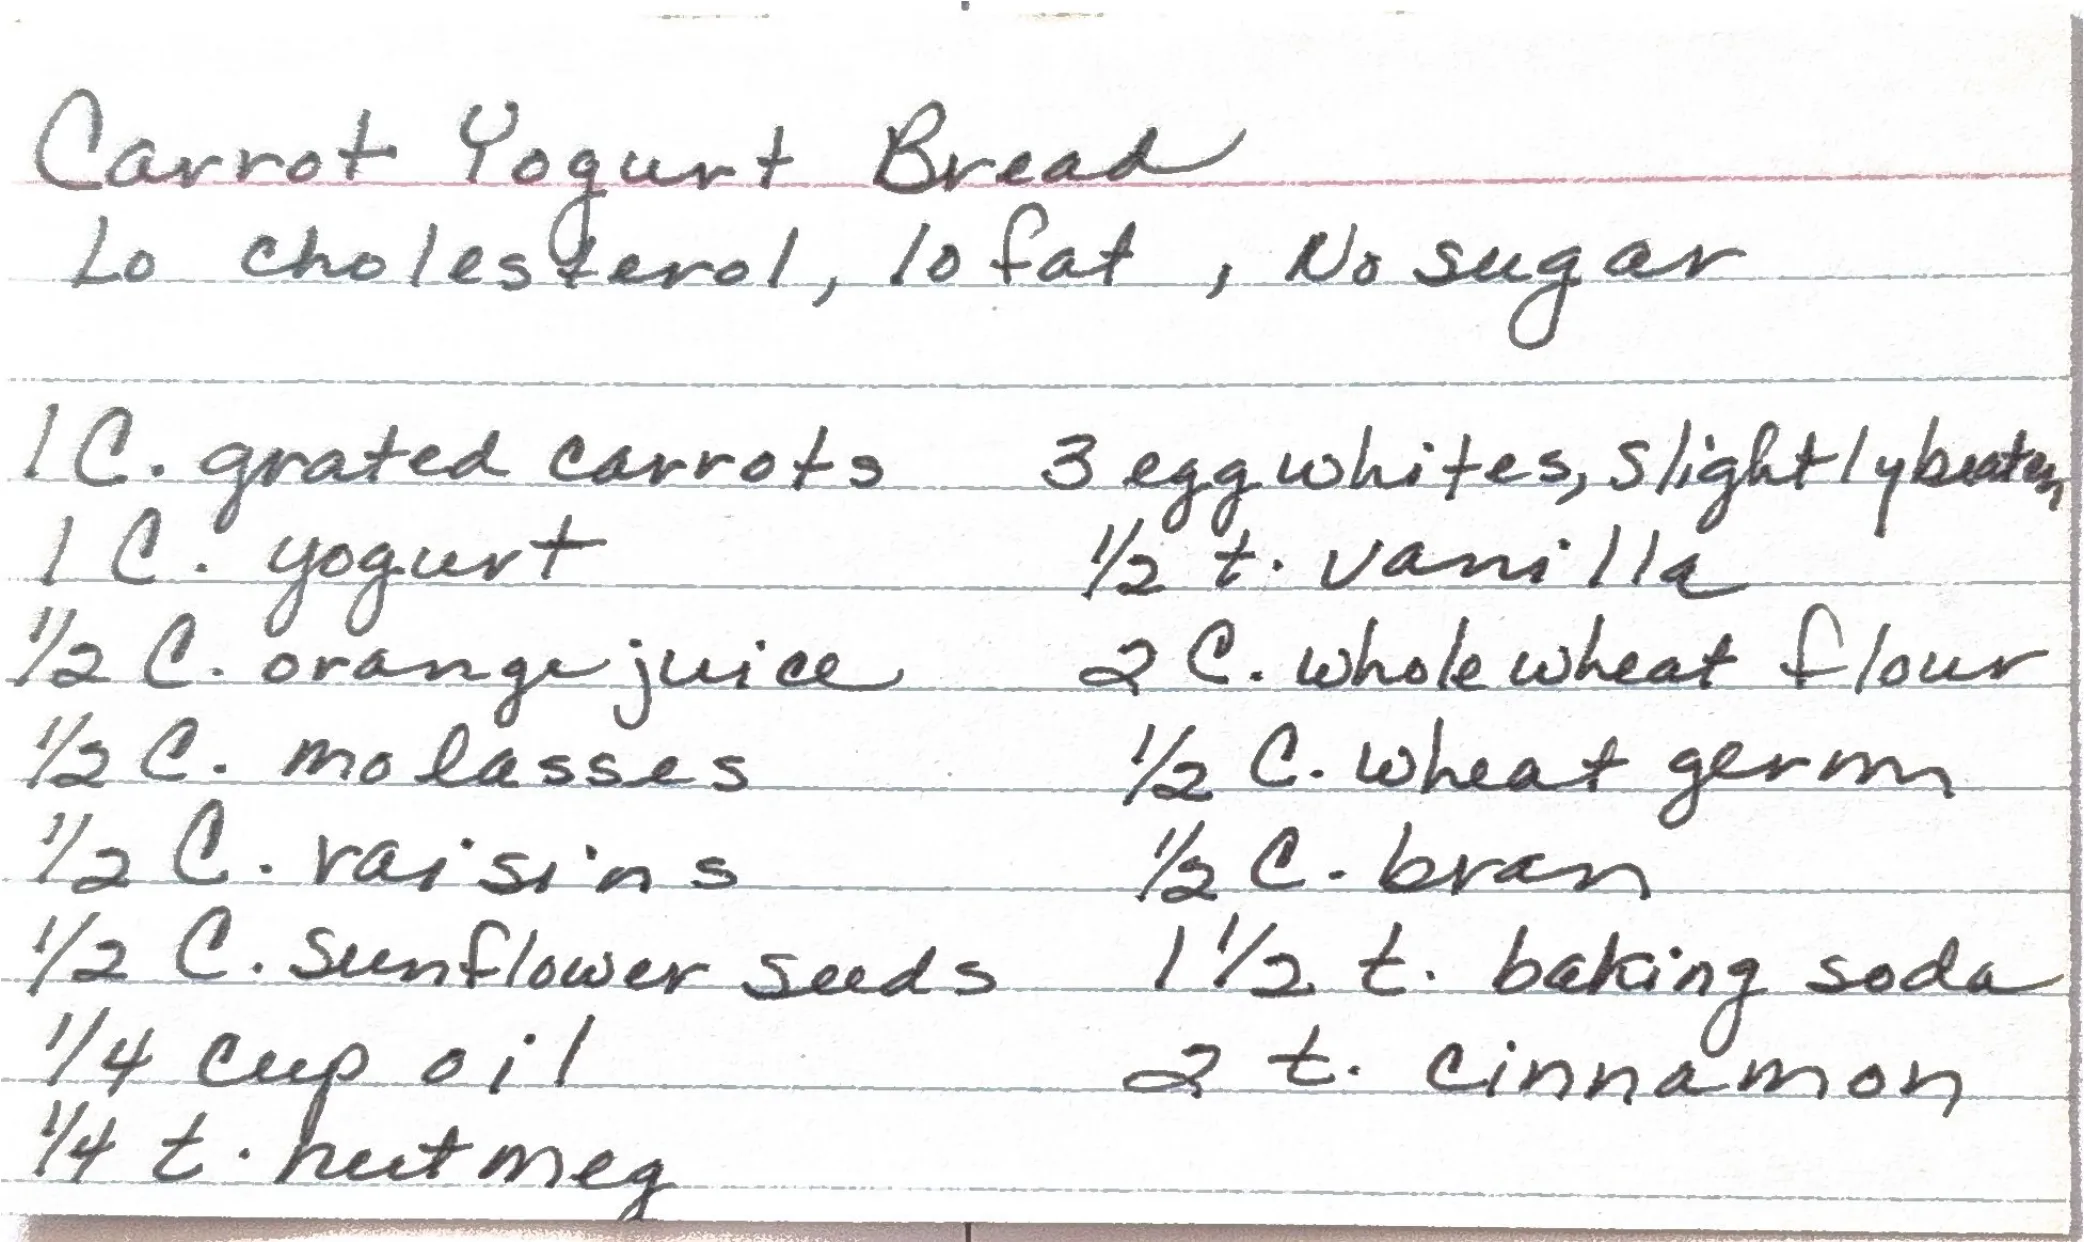 Carrot Yogurt Bread
Lo cholesterol, lo fat, No sugar
1 C. grated carrots
1 C. yogurt
1/2 C. orange juice
1/2 C. molasses
1/2 C. raisins
1/2 C. sunflower seeds
1/4 cup oil
1/4 t. nutmeg
3 egg whites, slightly beaten
1/2 t. vanilla
2 C. whole wheat flour
1/2 C. wheat germ
1/2 C. bran
1 1/2 t. baking soda
2 t. cinnamon